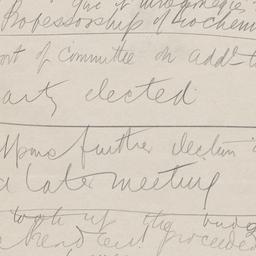 Professorship of Biochem
ort of Committee on addl t
arty elected
further election
a later meeting
took up the budg
proceeded